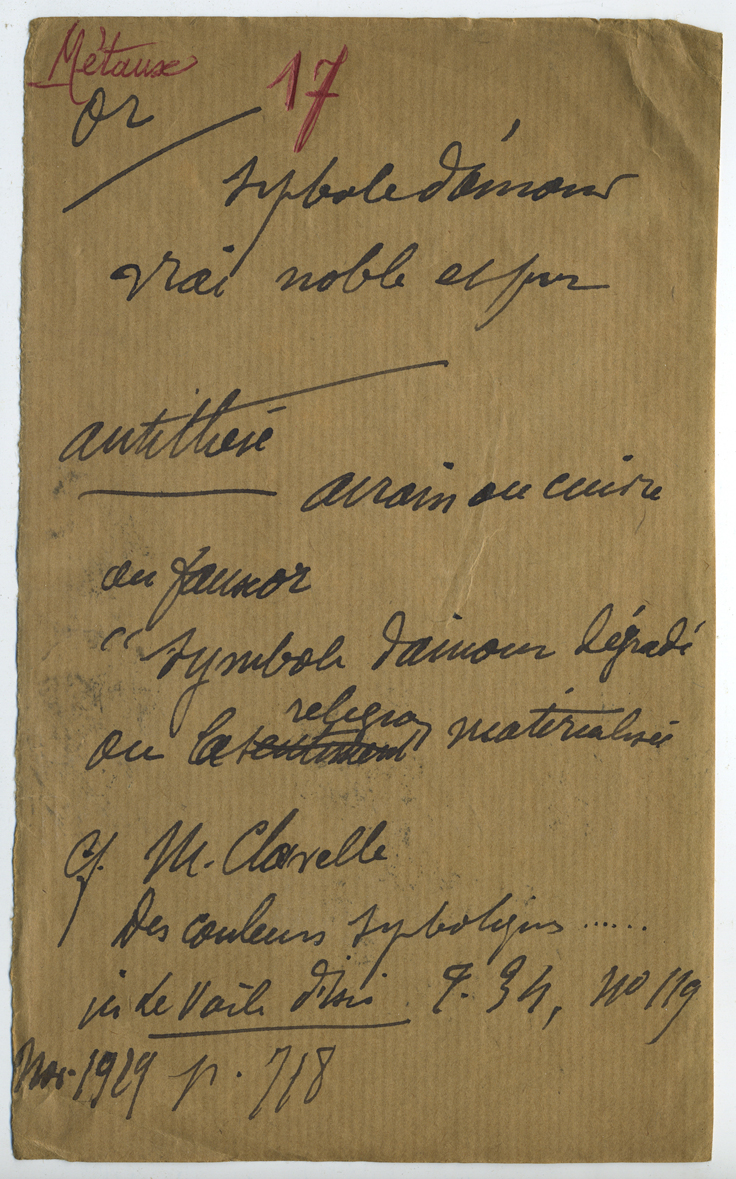 Métaux
17
or
symbole d'amour
vrai noble et pur
antithèse
airain ou cuivre
ou faux or
“symbole d'amour dégradé
religion
ou la sentiment" matérialisée
cf. M. Clavelle
Des couleurs symboliques ......
in Le Voile d'Isis T. 34, no 119
Nov. 1929 p. 718